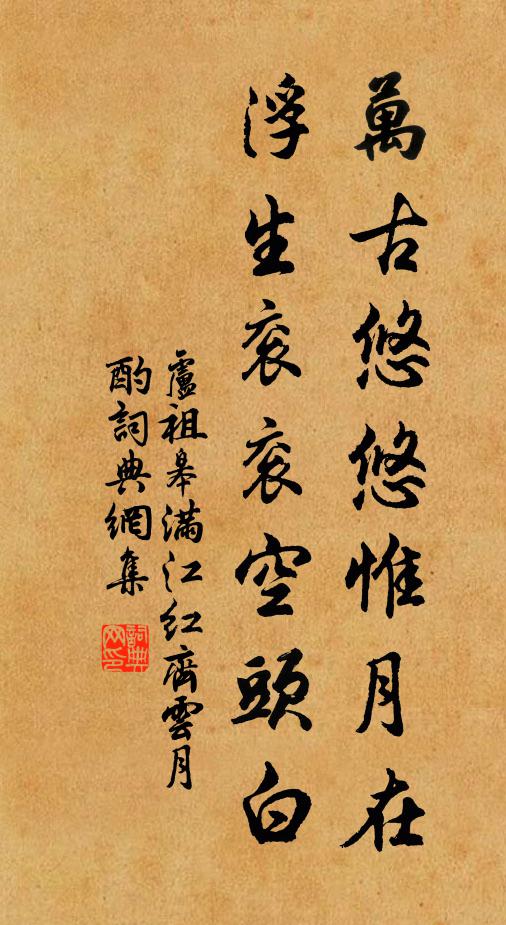 萬古悠悠惟月在
浮生衮衮空頭白
盧祖皋滿江紅齊雲月
酌詞典網集
詞典
网印